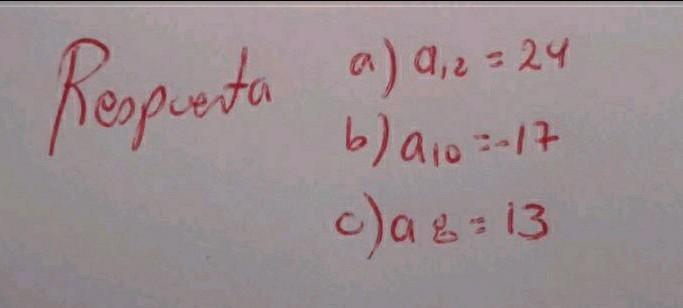 Respuesta
a) a₁₂ = 24
b) a₁₀ = -17
c) a₈ = 13